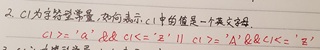 2. C1为字符型常量,如何表示C1中的值是一个英文字母.
C1 >= 'a' && C1 <= 'z' || C1 >= 'A' && C1 <= 'Z'